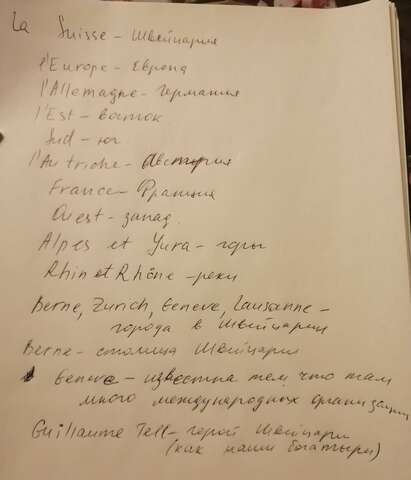 La Suisse - Швейцария
l'Europe - Европа
l'Allemagne - германия
l'Est - восток
Sud - юг
l'Autriche - Австрия
France - Франция
Ouest - запад.
Alpes et Yura - горы
Rhin et Rhône - реки
Berne, Zurich, Geneve, Lausanne -
города в Швейцарии
Berne - столица Швейцарии
Geneve - известна тем, что там
много международных организации
Guillaume Tell - герой Швейцари
(как наши богатыри)